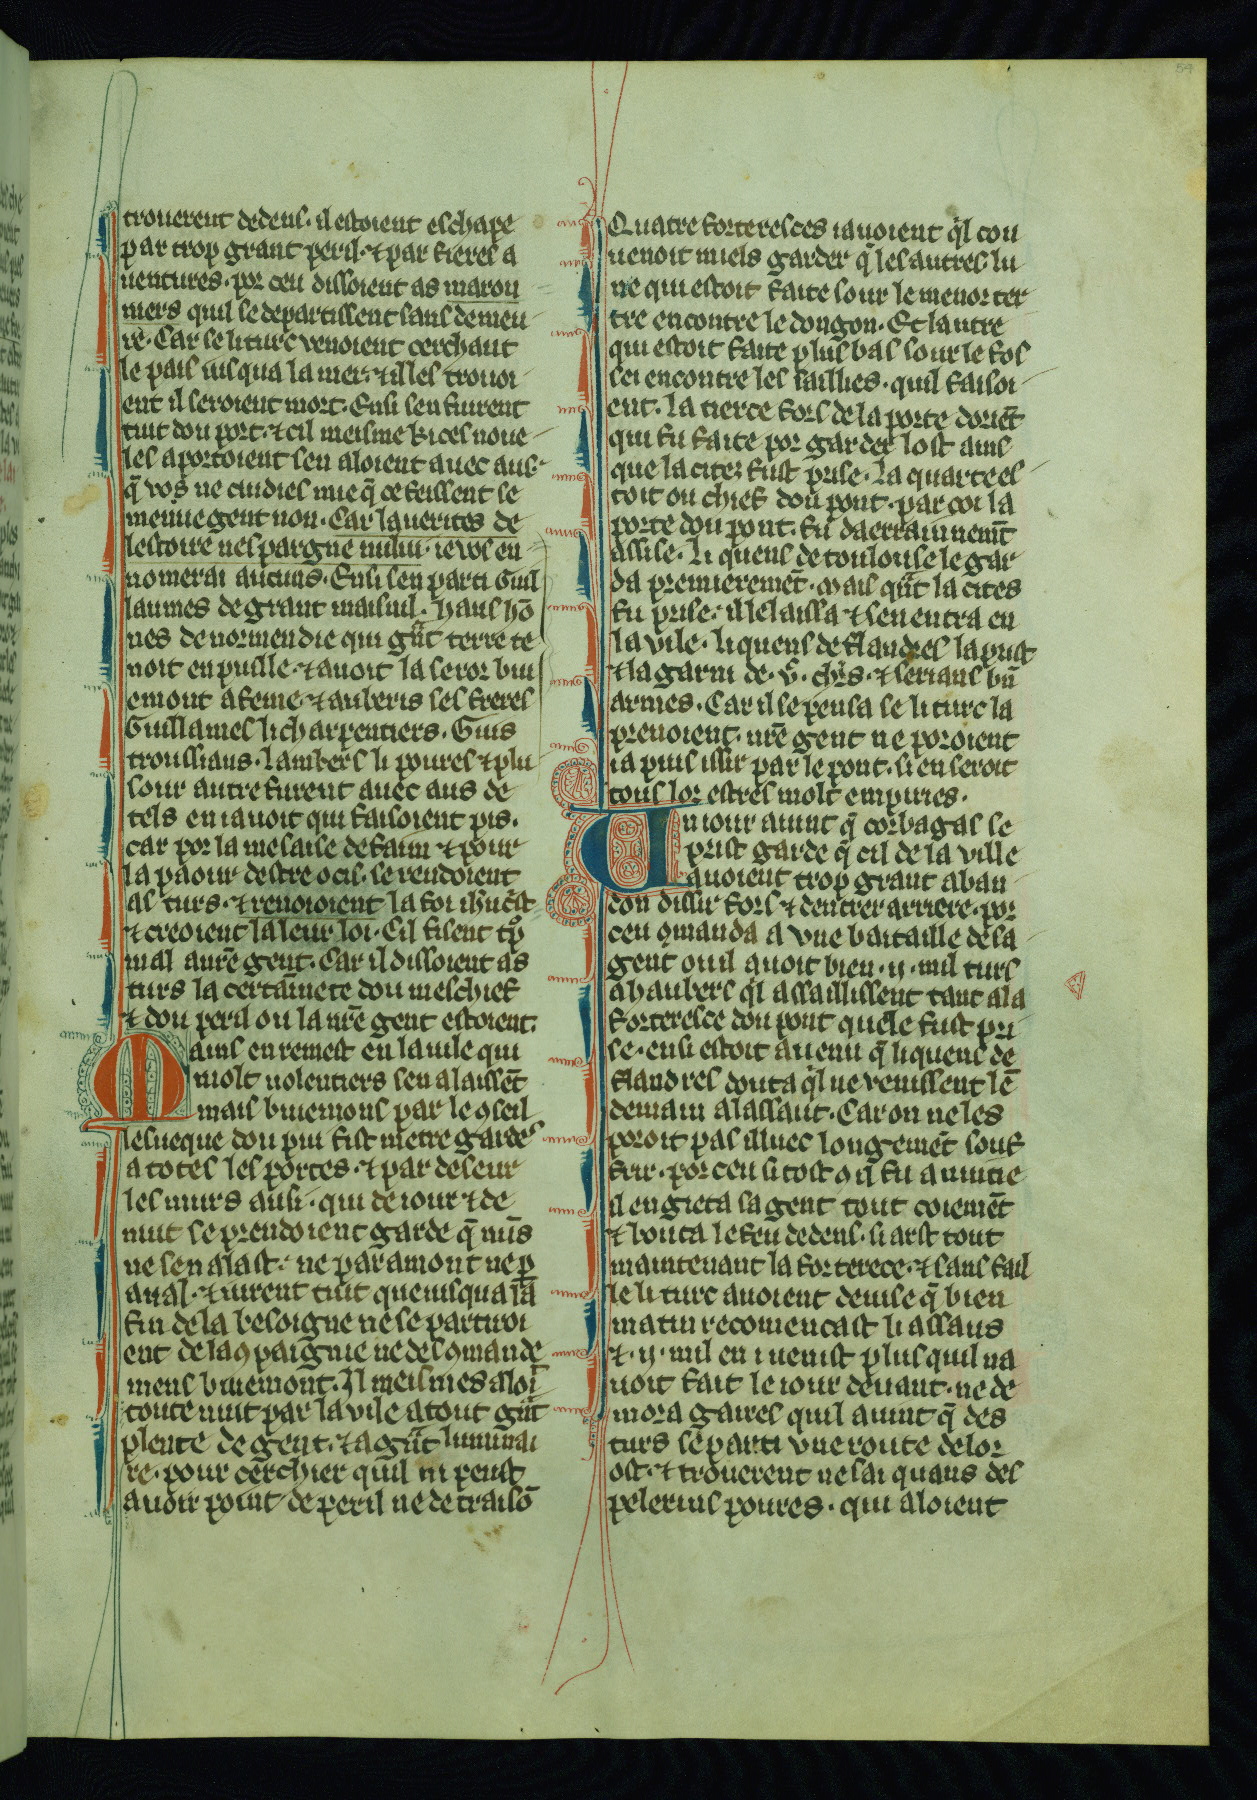 54
trouerent dedens. il estoient eschape
par trop grant peril. ⁊ par fieres a
uentures. por ceu dissoient as marou
niers quil se departissent sans demeu
re. Car se li turc venoient cerchant
le pais iusqua la mer. ⁊ il les trouoi
ent il seroient mort. Ensi sen furent
tuit dou port. ⁊ cil meisme ki ces noue
les aportoient sen aloient auec aus.
q̄ vos ne cuidies mie q̄ ce feissent se
menue gent non. Car la uerites de
lestoire nespargne nului. ie vos en
nomerai aucuns. Ensi sen parti Guil
laumes de grant maisnil. haus hō
nes de normendie qui gn̄t terre te
noit en puille. ⁊ auoit la seror bui
emont a feme. ⁊ auberis ses freres
Guillames li charpentiers. Guis
troussiaus. lambers li poures ⁊ plu
sour autre furent auec aus de
tels en i auoit qui faisoient pis.
car por la mesaise de faim ⁊ pour
la paour destre ocis. se rendoient
as turs. ⁊ renoioient la foi ihūcrist
⁊ creoient la leur loi. Cil fisent tͦp
mal a nrē gent. Car il dissoient as
turs la certaīnete dou meschief
⁊ dou peril ou la nrē gent estoient.
Mains en remest en la uile qui
molt uolentiers sen alaissēt
mais buiemons par le ꝯseil
lesueque dou pui fist metre gardes
a totes les portes. ⁊ par deseur
les murs ausi. qui de iour ⁊ de
nuit se prendoient garde q̄ nus
ne sen alast. ne par amont ne p
aual. ⁊ iurent tuit que iusqua la
fin de la besoigne ne se partiroi
ent de la ꝯpaignie ne des ꝯmande
mens buiemont. Il meismes aloit
toute nuit par la vile a tout gn̄t
plente de gent. ⁊ a gn̄t luminai
re. pour cerchier quil ni peust
auoir point de peril ne de traisō
Quatre forteresces i auoient ql cou
uenoit miels garder q̄ les autres. lu
ne qui estoit faite sour le menor ter
tre encontre le dongon. Et lautre
qui estoit faite plus bas sour le fos
sei encontre les saillies. quil faisoi
ent. la tierce fors de la porte doriēt
qui fu faite por garder lost ains
que la citez fust prise. La quarte es
toit ou chief dou pont. par coi la
porte dou pont. fu daerrainnemt
assise. li quens de toulouse le gar
da premieremēt. mais qn̄t la cites
fu prise. il le laissa ⁊ sen entra en
la vile. li quens de flandres la prist
⁊ la garni de .v͛. chrs. ⁊ serians bn̄
armes. Car il se pensa se li turc la
prenoient. nrē gent ne poroient
ia puis issir par le pont. si en seroit
tous lor estres molt empiries.
Un iour auint q̄ corbagas se
prist garde q̄ cil de la ville
auoient trop grant aban
don dissir fors ⁊ dentrer arriere. por
ceu ꝯmanda a vne bataille de sa
gent ou il auoit bien .ij. mil turs
a haubers ql assaillissent tant a la
forteresce dou pont quele fust pri
se. ensi estoit auenu q̄ li quens de
flandres douta ql ne venissent lē
demain a lassaut. Car on ne les
poroit pas illuec longemēt souf
frir. por ceu si tost ꝯ il fu a nuitie
il en gieta sa gent tout coiemēt
⁊ bouta le feu dedens. si arst tout
maintenant la forterece. ⁊ sans fail
le li turc auoient deuise q̄ bien
matin recomencast li assaus
⁊ .ij. mil en i uenist plus quil na
uoit fait le iour deuant. ne de
mora gaires quil auint q̄ des
turs se parti vne route de lor
ost. ⁊ trouerent ne sai quans des
pelerins poures. qui aloient